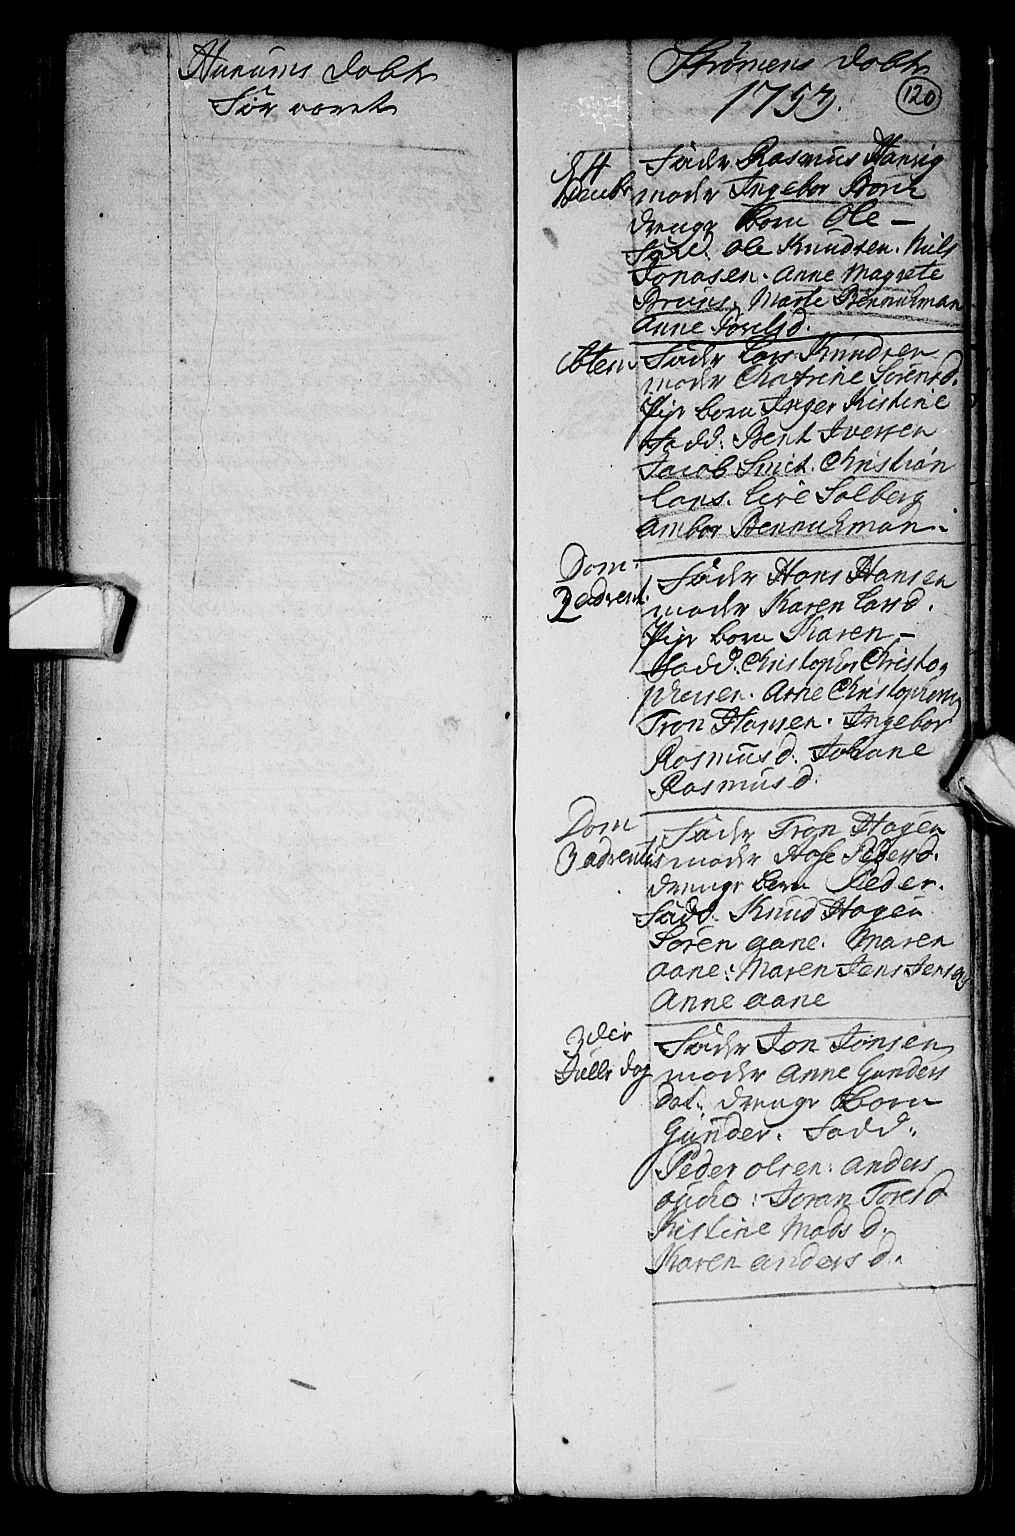 Hurums Dobt
før været
Strømens Dobt
1753.
120
Fader Rasmus
moder Ingebor
drenge born Ole —
fad. Ole Knudsen. Niels
Jonasen. Anne Magrete
Bruns. Marte Bennichman
Anne
Fader Lars Knudsen
moder Chatrine Sørensd.
Pige born Inger Kistine
fadd: Bent Iversen
Jacob Smit. Christian
Lars. Live Solberg
Ambor Bennichman.
Dom:
2 advent.
Fader Hans Hansen
moder Karen Larsd.
Pige born Karen —
fadd. Christopher Christo
phersen. Arne Christophersen
Tron Hansen. Ingebor
Rasmusd. Johane
Rasmusd.
Dom
3 advents
Fader Tron Hagen
moder Pedersd.
drenge born Peder.
fadd. Knud Hagen
Søren aane. Maren
aane: Maren Jens
Anne aane
3der
Julle dag
Fader Jon Jonsen
moder Anne Gunders
dat. drenge Born
Gunder. fadd:
Peder Olsen: Anders
: Joran Toresd
Kistine Mads d.
Karen Anders d.